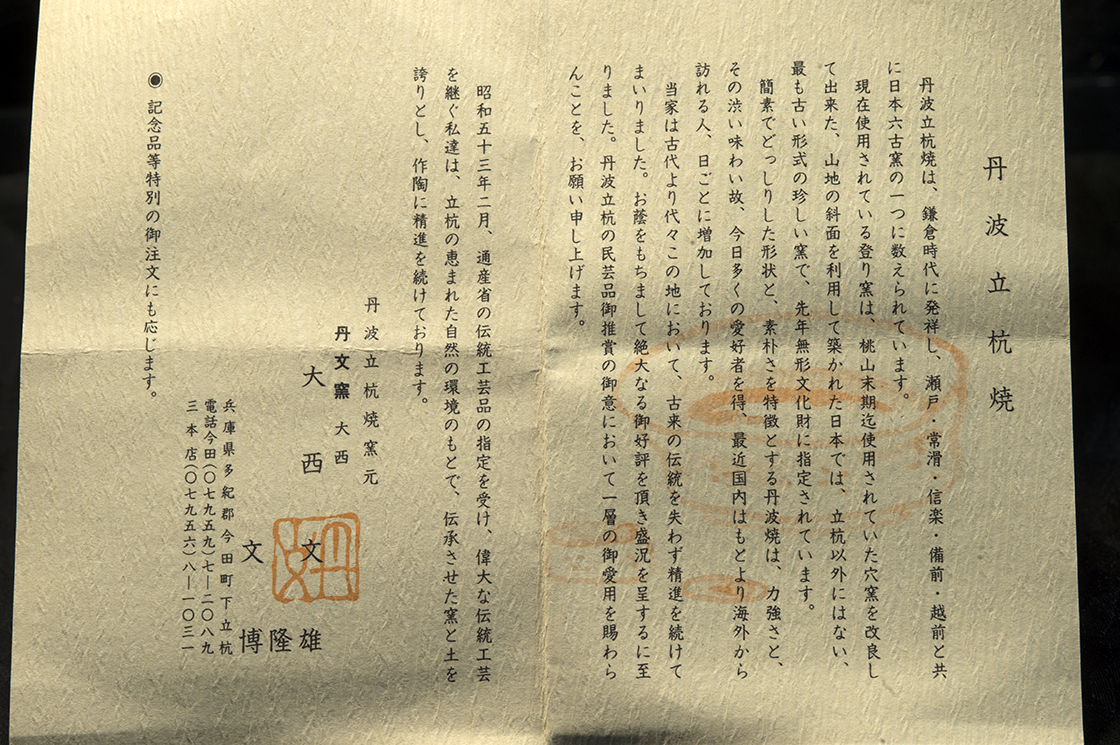 丹波立杭焼
丹波立杭焼は、鎌倉時代に発祥し、瀬戸・常滑・信楽・備前・越前と共
に日本六古窯の一つに数えられています。
現在使用されている登り窯は、桃山末期迄使用されていた穴窯を改良し
て出来た、山地の斜面を利用して築かれた日本では、立杭以外にはない、
最も古い形式の珍しい窯で、先年無形文化財に指定されています。
簡素でどっしりした形状と、素朴さを特徴とする丹波焼は、力強さと、
その渋い味わい故、今日多くの愛好者を得、最近国内はもとより海外から
訪れる人、日ごとに増加しております。
当家は古代より代々この地において、古来の伝統を失わず精進を続けて
まいりました。お蔭をもちまして絶大なる御好評を頂き盛況を呈するに至
りました。丹波立杭の民芸品御推賞の御意において一層の御愛用を賜わら
んことを、お願い申し上げます。
昭和五十三年二月、通産省の伝統工芸品の指定を受け、偉大な伝統工芸
を継ぐ私達は、立杭の恵まれた自然の環境のもとで、伝承させた窯と土を
誇りとし、作陶に精進を続けております。
丹波立杭焼窯元
丹文窯 大西
大西 文雄
隆
文博
兵庫県多紀郡今田町下立杭
電話今田(〇七九五九)七―二〇八九
三本店(〇七九五六)八―一〇三一
◉ 記念品等特別の御注文にも応じます。